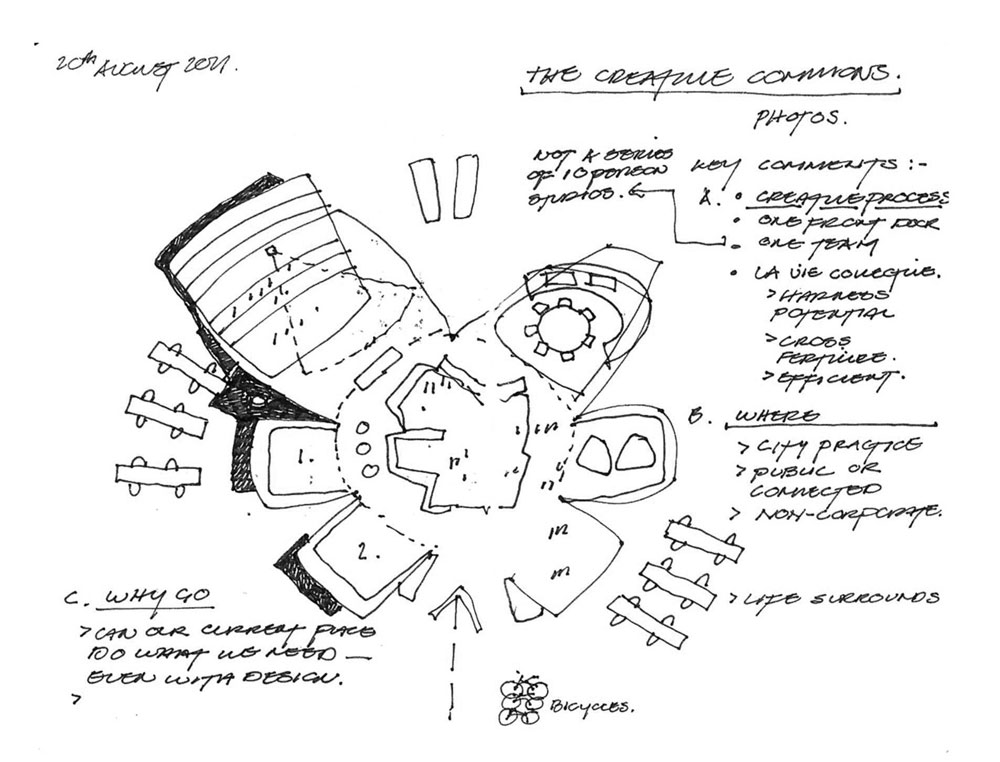 20TH AUGUST 2021.
THE CREATIVE COMMONS.
PHOTOS.
NOT A SERIES
OF 10 PERSON
STUDIOS.
KEY COMMENTS :-
A. • CREATIVE PROCESS
• ONE FRONT DOOR
• ONE TEAM
• LA VIE
> HARNESS
POTENTIAL
> CROSS
FERTILIZE.
> EFFICIENT.
B. WHERE
> CITY PRACTICE
> PUBLIC OR
CONNECTED
> NON-CORPORATE.
> LIFE SURROUNDS
1.
2.
C. WHY GO
> CAN OUR CURRENT PLACE
DO WHAT WE NEED —
EVEN WITH DESIGN.
>
BICYCLES.